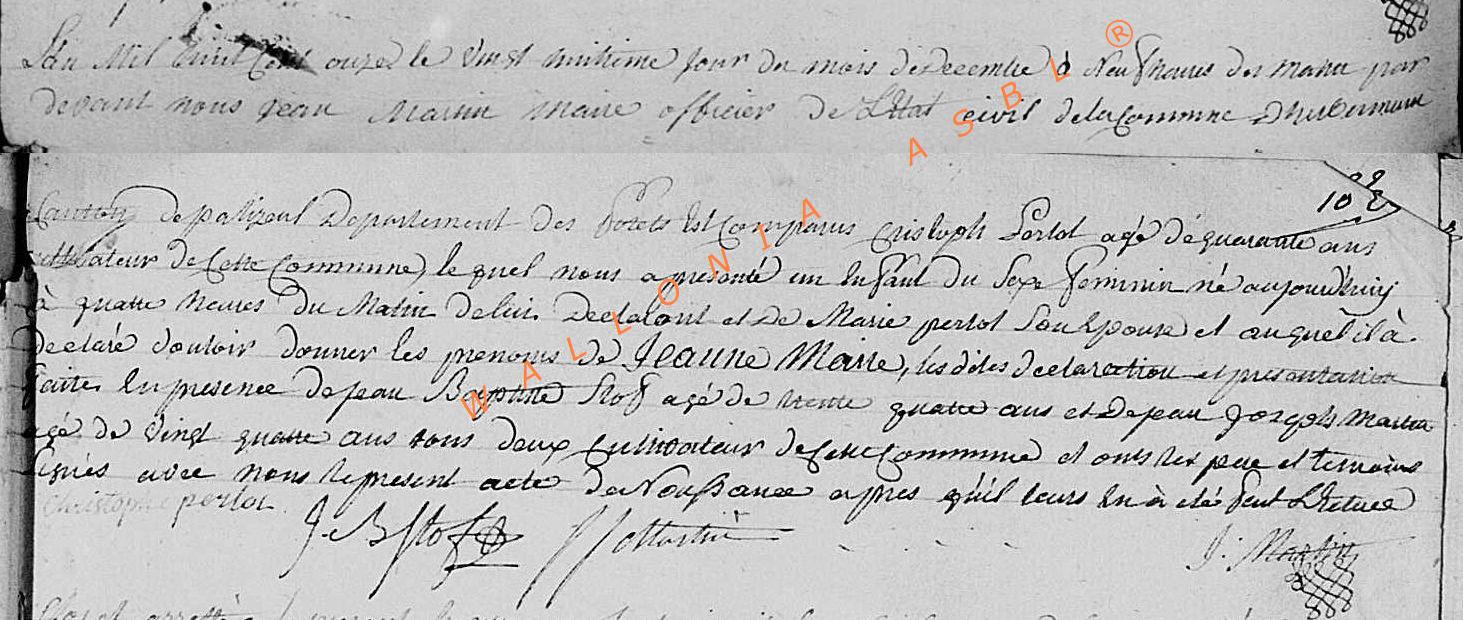 L'an Mil huit Cent onze le vingt huitieme Jour du mois de Decembre à Neuf heures du matin par
devant nous Jean Martin Maire officier de L'Etat civil de la Commune D'hubermont
108
Canton de palizeul Departement des forets Est Comparus Cristoph Perlot agé de quarante ans
cultivateur de Cette Commune, le quel nous a presenté un Enfant du Sexe feminin né aujourd'huij
à quatre heures du Matin de lui Declarant et De Marie perlot Son Epouse et auquel il à
Declaré vouloir donner les prenoms de Jeanne Marie, les dites declaration et presentation
faites En presence de jean Baptiste Stof agé de trente quatre ans et De jean Joseph Martin
agé de vingt quatre ans tous deux Cultivateur de Cette Commune et onts les pere et temoins
signés avec nous le present acte de Naissance apres qu'il leurs En à eté fait Lecture
Christophe perlot
J. B Stof
J J Martin
J: Martin
Clos et arretté
WALLONIA ASBL ®